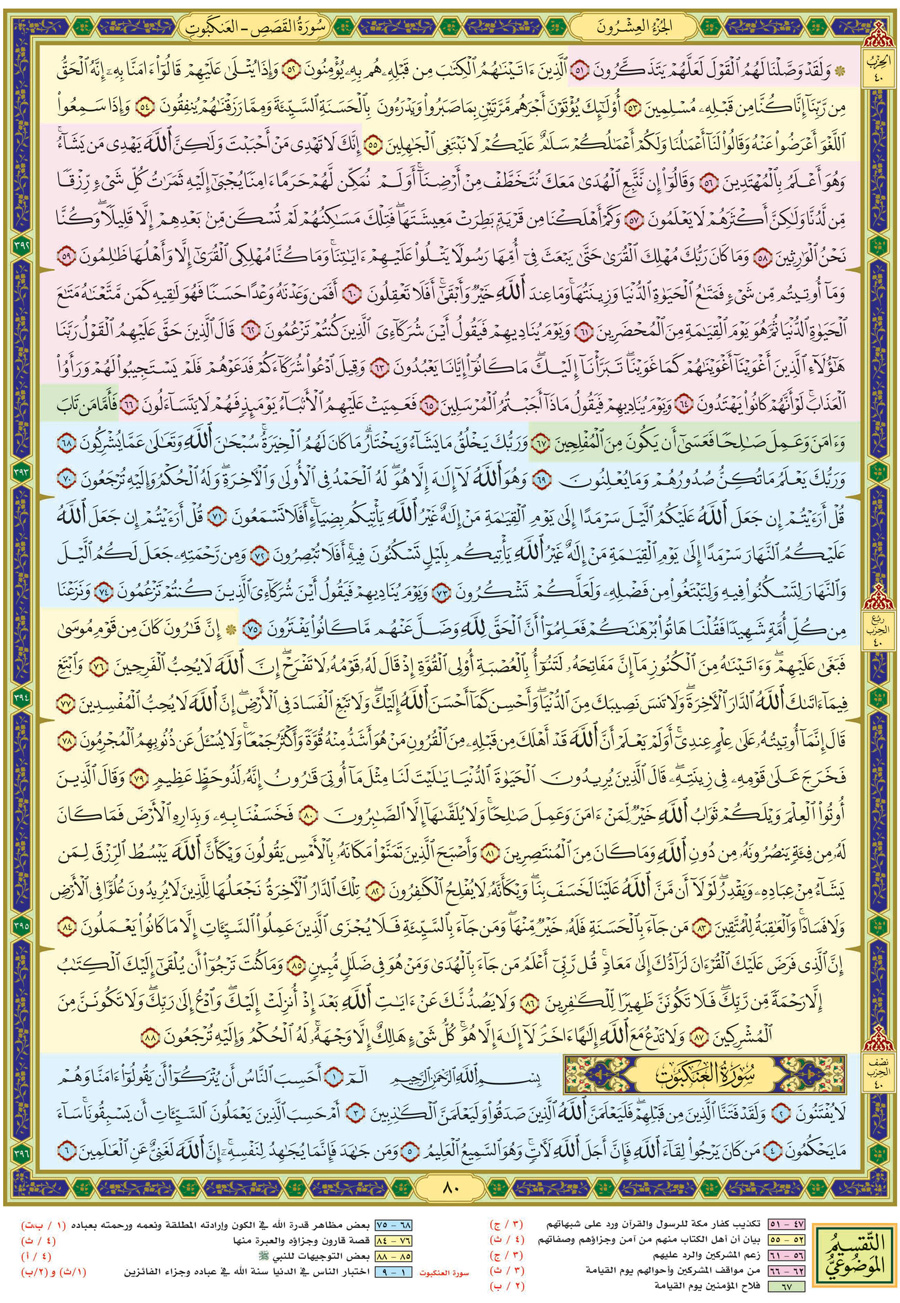 سُورَةُ القَصَصِ - العَنكَبُوتِ
الجُزْءُ العِشْرُونَ
الحِزْبُ ٤٠
۞ وَلَقَدْ وَصَّلْنَا لَهُمُ ٱلْقَوْلَ لَعَلَّهُمْ يَتَذَكَّرُونَ ٥١ ٱلَّذِينَ ءَاتَيْنَٰهُمُ ٱلْكِتَٰبَ مِن قَبْلِهِۦ هُم بِهِۦ يُؤْمِنُونَ ٥٢ وَإِذَا يُتْلَىٰ عَلَيْهِمْ قَالُوٓا۟ ءَامَنَّا بِهِۦٓ إِنَّهُ ٱلْحَقُّ
مِن رَّبِّنَآ إِنَّا كُنَّا مِن قَبْلِهِۦ مُسْلِمِينَ ٥٣ أُو۟لَٰٓئِكَ يُؤْتَوْنَ أَجْرَهُم مَّرَّتَيْنِ بِمَا صَبَرُوا۟ وَيَدْرَءُونَ بِٱلْحَسَنَةِ ٱلسَّيِّئَةَ وَمِمَّا رَزَقْنَٰهُمْ يُنفِقُونَ ٥٤ وَإِذَا سَمِعُوا۟
ٱللَّغْوَ أَعْرَضُوا۟ عَنْهُ وَقَالُوا۟ لَنَآ أَعْمَٰلُنَا وَلَكُمْ أَعْمَٰلُكُمْ سَلَٰمٌ عَلَيْكُمْ لَا نَبْتَغِى ٱلْجَٰهِلِينَ ٥٥ إِنَّكَ لَا تَهْدِى مَنْ أَحْبَبْتَ وَلَٰكِنَّ ٱللَّهَ يَهْدِى مَن يَشَآءُ ۚ
وَهُوَ أَعْلَمُ بِٱلْمُهْتَدِينَ ٥٦ وَقَالُوٓا۟ إِن نَّتَّبِعِ ٱلْهُدَىٰ مَعَكَ نُتَخَطَّفْ مِنْ أَرْضِنَآ ۚ أَوَلَمْ نُمَكِّن لَّهُمْ حَرَمًا ءَامِنًا يُجْبَىٰٓ إِلَيْهِ ثَمَرَٰتُ كُلِّ شَىْءٍ رِّزْقًا
مِّن لَّدُنَّا وَلَٰكِنَّ أَكْثَرَهُمْ لَا يَعْلَمُونَ ٥٧ وَكَمْ أَهْلَكْنَا مِن قَرْيَةٍۭ بَطِرَتْ مَعِيشَتَهَا ۖ فَتِلْكَ مَسَٰكِنُهُمْ لَمْ تُسْكَن مِّنۢ بَعْدِهِمْ إِلَّا قَلِيلًا ۖ وَكُنَّا
نَحْنُ ٱلْوَٰرِثِينَ ٥٨ وَمَا كَانَ رَبُّكَ مُهْلِكَ ٱلْقُرَىٰ حَتَّىٰ يَبْعَثَ فِىٓ أُمِّهَا رَسُولًا يَتْلُوا۟ عَلَيْهِمْ ءَايَٰتِنَا ۚ وَمَا كُنَّا مُهْلِكِى ٱلْقُرَىٰٓ إِلَّا وَأَهْلُهَا ظَٰلِمُونَ ٥٩
وَمَآ أُوتِيتُم مِّن شَىْءٍ فَمَتَٰعُ ٱلْحَيَوٰةِ ٱلدُّنْيَا وَزِينَتُهَا ۚ وَمَا عِندَ ٱللَّهِ خَيْرٌ وَأَبْقَىٰٓ ۚ أَفَلَا تَعْقِلُونَ ٦٠ أَفَمَن وَعَدْنَٰهُ وَعْدًا حَسَنًا فَهُوَ لَٰقِيهِ كَمَن مَّتَّعْنَٰهُ مَتَٰعَ
ٱلْحَيَوٰةِ ٱلدُّنْيَا ثُمَّ هُوَ يَوْمَ ٱلْقِيَٰمَةِ مِنَ ٱلْمُحْضَرِينَ ٦١ وَيَوْمَ يُنَادِيهِمْ فَيَقُولُ أَيْنَ شُرَكَآءِىَ ٱلَّذِينَ كُنتُمْ تَزْعُمُونَ ٦٢ قَالَ ٱلَّذِينَ حَقَّ عَلَيْهِمُ ٱلْقَوْلُ رَبَّنَا
هَٰٓؤُلَآءِ ٱلَّذِينَ أَغْوَيْنَآ أَغْوَيْنَٰهُمْ كَمَا غَوَيْنَا ۖ تَبَرَّأْنَآ إِلَيْكَ ۖ مَا كَانُوٓا۟ إِيَّانَا يَعْبُدُونَ ٦٣ وَقِيلَ ٱدْعُوا۟ شُرَكَآءَكُمْ فَدَعَوْهُمْ فَلَمْ يَسْتَجِيبُوا۟ لَهُمْ وَرَأَوُا۟
ٱلْعَذَابَ ۚ لَوْ أَنَّهُمْ كَانُوا۟ يَهْتَدُونَ ٦٤ وَيَوْمَ يُنَادِيهِمْ فَيَقُولُ مَاذَآ أَجَبْتُمُ ٱلْمُرْسَلِينَ ٦٥ فَعَمِيَتْ عَلَيْهِمُ ٱلْأَنۢبَآءُ يَوْمَئِذٍ فَهُمْ لَا يَتَسَآءَلُونَ ٦٦ فَأَمَّا مَن تَابَ
وَءَامَنَ وَعَمِلَ صَٰلِحًا فَعَسَىٰٓ أَن يَكُونَ مِنَ ٱلْمُفْلِحِينَ ٦٧ وَرَبُّكَ يَخْلُقُ مَا يَشَآءُ وَيَخْتَارُ ۗ مَا كَانَ لَهُمُ ٱلْخِيَرَةُ ۚ سُبْحَٰنَ ٱللَّهِ وَتَعَٰلَىٰ عَمَّا يُشْرِكُونَ ٦٨
وَرَبُّكَ يَعْلَمُ مَا تُكِنُّ صُدُورُهُمْ وَمَا يُعْلِنُونَ ٦٩ وَهُوَ ٱللَّهُ لَآ إِلَٰهَ إِلَّا هُوَ ۖ لَهُ ٱلْحَمْدُ فِى ٱلْأُولَىٰ وَٱلْءَاخِرَةِ ۖ وَلَهُ ٱلْحُكْمُ وَإِلَيْهِ تُرْجَعُونَ ٧٠
قُلْ أَرَءَيْتُمْ إِن جَعَلَ ٱللَّهُ عَلَيْكُمُ ٱلَّيْلَ سَرْمَدًا إِلَىٰ يَوْمِ ٱلْقِيَٰمَةِ مَنْ إِلَٰهٌ غَيْرُ ٱللَّهِ يَأْتِيكُم بِضِيَآءٍ ۖ أَفَلَا تَسْمَعُونَ ٧١ قُلْ أَرَءَيْتُمْ إِن جَعَلَ ٱللَّهُ
عَلَيْكُمُ ٱلنَّهَارَ سَرْمَدًا إِلَىٰ يَوْمِ ٱلْقِيَٰمَةِ مَنْ إِلَٰهٌ غَيْرُ ٱللَّهِ يَأْتِيكُم بِلَيْلٍ تَسْكُنُونَ فِيهِ ۖ أَفَلَا تُبْصِرُونَ ٧٢ وَمِن رَّحْمَتِهِۦ جَعَلَ لَكُمُ ٱلَّيْلَ
وَٱلنَّهَارَ لِتَسْكُنُوا۟ فِيهِ وَلِتَبْتَغُوا۟ مِن فَضْلِهِۦ وَلَعَلَّكُمْ تَشْكُرُونَ ٧٣ وَيَوْمَ يُنَادِيهِمْ فَيَقُولُ أَيْنَ شُرَكَآءِىَ ٱلَّذِينَ كُنتُمْ تَزْعُمُونَ ٧٤ وَنَزَعْنَا
مِن كُلِّ أُمَّةٍ شَهِيدًا فَقُلْنَا هَاتُوا۟ بُرْهَٰنَكُمْ فَعَلِمُوٓا۟ أَنَّ ٱلْحَقَّ لِلَّهِ وَضَلَّ عَنْهُم مَّا كَانُوا۟ يَفْتَرُونَ ٧٥ ۞ إِنَّ قَٰرُونَ كَانَ مِن قَوْمِ مُوسَىٰ
فَبَغَىٰ عَلَيْهِمْ ۖ وَءَاتَيْنَٰهُ مِنَ ٱلْكُنُوزِ مَآ إِنَّ مَفَاتِحَهُۥ لَتَنُوٓأُ بِٱلْعُصْبَةِ أُو۟لِى ٱلْقُوَّةِ إِذْ قَالَ لَهُۥ قَوْمُهُۥ لَا تَفْرَحْ ۖ إِنَّ ٱللَّهَ لَا يُحِبُّ ٱلْفَرِحِينَ ٧٦ وَٱبْتَغِ
فِيمَآ ءَاتَىٰكَ ٱللَّهُ ٱلدَّارَ ٱلْءَاخِرَةَ ۖ وَلَا تَنسَ نَصِيبَكَ مِنَ ٱلدُّنْيَا ۖ وَأَحْسِن كَمَآ أَحْسَنَ ٱللَّهُ إِلَيْكَ ۖ وَلَا تَبْغِ ٱلْفَسَادَ فِى ٱلْأَرْضِ ۖ إِنَّ ٱللَّهَ لَا يُحِبُّ ٱلْمُفْسِدِينَ ٧٧
قَالَ إِنَّمَآ أُوتِيتُهُۥ عَلَىٰ عِلْمٍ عِندِىٓ ۚ أَوَلَمْ يَعْلَمْ أَنَّ ٱللَّهَ قَدْ أَهْلَكَ مِن قَبْلِهِۦ مِنَ ٱلْقُرُونِ مَنْ هُوَ أَشَدُّ مِنْهُ قُوَّةً وَأَكْثَرُ جَمْعًا ۚ وَلَا يُسْـَٔلُ عَن ذُنُوبِهِمُ ٱلْمُجْرِمُونَ ٧٨
فَخَرَجَ عَلَىٰ قَوْمِهِۦ فِى زِينَتِهِۦ ۖ قَالَ ٱلَّذِينَ يُرِيدُونَ ٱلْحَيَوٰةَ ٱلدُّنْيَا يَٰلَيْتَ لَنَا مِثْلَ مَآ أُوتِىَ قَٰرُونُ إِنَّهُۥ لَذُو حَظٍّ عَظِيمٍ ٧٩ وَقَالَ ٱلَّذِينَ
أُوتُوا۟ ٱلْعِلْمَ وَيْلَكُمْ ثَوَابُ ٱللَّهِ خَيْرٌ لِّمَنْ ءَامَنَ وَعَمِلَ صَٰلِحًا وَلَا يُلَقَّىٰهَآ إِلَّا ٱلصَّٰبِرُونَ ٨٠ فَخَسَفْنَا بِهِۦ وَبِدَارِهِ ٱلْأَرْضَ فَمَا كَانَ
لَهُۥ مِن فِئَةٍ يَنصُرُونَهُۥ مِن دُونِ ٱللَّهِ وَمَا كَانَ مِنَ ٱلْمُنتَصِرِينَ ٨١ وَأَصْبَحَ ٱلَّذِينَ تَمَنَّوْا۟ مَكَانَهُۥ بِٱلْأَمْسِ يَقُولُونَ وَيْكَأَنَّ ٱللَّهَ يَبْسُطُ ٱلرِّزْقَ لِمَن
يَشَآءُ مِنْ عِبَادِهِۦ وَيَقْدِرُ ۖ لَوْلَآ أَن مَّنَّ ٱللَّهُ عَلَيْنَا لَخَسَفَ بِنَا ۖ وَيْكَأَنَّهُۥ لَا يُفْلِحُ ٱلْكَٰفِرُونَ ٨٢ تِلْكَ ٱلدَّارُ ٱلْءَاخِرَةُ نَجْعَلُهَا لِلَّذِينَ لَا يُرِيدُونَ عُلُوًّا فِى ٱلْأَرْضِ
وَلَا فَسَادًا ۚ وَٱلْعَٰقِبَةُ لِلْمُتَّقِينَ ٨٣ مَن جَآءَ بِٱلْحَسَنَةِ فَلَهُۥ خَيْرٌ مِّنْهَا ۖ وَمَن جَآءَ بِٱلسَّيِّئَةِ فَلَا يُجْزَى ٱلَّذِينَ عَمِلُوا۟ ٱلسَّيِّـَٔاتِ إِلَّا مَا كَانُوا۟ يَعْمَلُونَ ٨٤
إِنَّ ٱلَّذِى فَرَضَ عَلَيْكَ ٱلْقُرْءَانَ لَرَآدُّكَ إِلَىٰ مَعَادٍ ۚ قُل رَّبِّىٓ أَعْلَمُ مَن جَآءَ بِٱلْهُدَىٰ وَمَنْ هُوَ فِى ضَلَٰلٍ مُّبِينٍ ٨٥ وَمَا كُنتَ تَرْجُوٓا۟ أَن يُلْقَىٰٓ إِلَيْكَ ٱلْكِتَٰبُ
إِلَّا رَحْمَةً مِّن رَّبِّكَ ۖ فَلَا تَكُونَنَّ ظَهِيرًا لِّلْكَٰفِرِينَ ٨٦ وَلَا يَصُدُّنَّكَ عَنْ ءَايَٰتِ ٱللَّهِ بَعْدَ إِذْ أُنزِلَتْ إِلَيْكَ ۖ وَٱدْعُ إِلَىٰ رَبِّكَ ۖ وَلَا تَكُونَنَّ مِنَ
ٱلْمُشْرِكِينَ ٨٧ وَلَا تَدْعُ مَعَ ٱللَّهِ إِلَٰهًا ءَاخَرَ ۘ لَآ إِلَٰهَ إِلَّا هُوَ ۚ كُلُّ شَىْءٍ هَالِكٌ إِلَّا وَجْهَهُۥ ۚ لَهُ ٱلْحُكْمُ وَإِلَيْهِ تُرْجَعُونَ ٨٨
سُورَةُ العَنكَبُوتِ بِسْمِ ٱللَّهِ ٱلرَّحْمَٰنِ ٱلرَّحِيمِ الٓمٓ ١ أَحَسِبَ ٱلنَّاسُ أَن يُتْرَكُوٓا۟ أَن يَقُولُوٓا۟ ءَامَنَّا وَهُمْ
لَا يُفْتَنُونَ ٢ وَلَقَدْ فَتَنَّا ٱلَّذِينَ مِن قَبْلِهِمْ ۖ فَلَيَعْلَمَنَّ ٱللَّهُ ٱلَّذِينَ صَدَقُوا۟ وَلَيَعْلَمَنَّ ٱلْكَٰذِبِينَ ٣ أَمْ حَسِبَ ٱلَّذِينَ يَعْمَلُونَ ٱلسَّيِّـَٔاتِ أَن يَسْبِقُونَا ۚ سَآءَ
مَا يَحْكُمُونَ ٤ مَن كَانَ يَرْجُوا۟ لِقَآءَ ٱللَّهِ فَإِنَّ أَجَلَ ٱللَّهِ لَءَاتٍ ۚ وَهُوَ ٱلسَّمِيعُ ٱلْعَلِيمُ ٥ وَمَن جَٰهَدَ فَإِنَّمَا يُجَٰهِدُ لِنَفْسِهِۦٓ ۚ إِنَّ ٱللَّهَ لَغَنِىٌّ عَنِ ٱلْعَٰلَمِينَ ٦
ربع الحزب ٤٠
نصف الحزب ٤٠
٣٩٢
٣٩٣
٣٩٤
٣٩٥
٣٩٦
٨٠
التَّقْسِيمُ المَوْضُوعِيُّ
٤٧ - ٥١ تكذيب كفار مكة للرسول والقرآن ورد على شبهاتهم (٣ / ج)
٥٢ - ٥٥ بيان أن أهل الكتاب منهم من آمن وجزاؤهم وصفاتهم (٤ / ث)
٥٦ - ٦١ زعم المشركين والرد عليهم (٣ / ج)
٦٢ - ٦٦ من مواقف المشركين وأحوالهم يوم القيامة (٣ / ث)
٦٧ فلاح المؤمنين يوم القيامة (٢ / ب)
٦٨ - ٧٥ بعض مظاهر قدرة الله في الكون وإرادته المطلقة ونعمه ورحمته بعباده (١ / ب،ت)
٧٦ - ٨٤ قصة قارون وجزاؤه والعبرة منها (٤ / ث)
٨٥ - ٨٨ بعض التوجيهات للنبي ﷺ (٤ / أ)
سورة العنكبوت ١ - ٩ اختبار الناس في الدنيا سنة الله في عباده وجزاء الفائزين (١/ث) و (٢/ب)